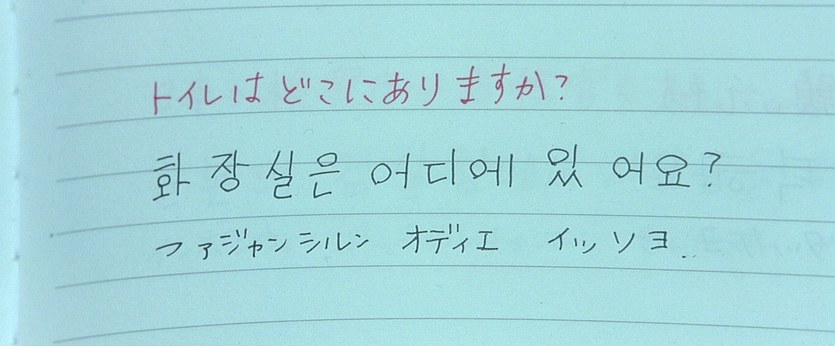 トイレはどこにありますか?
화장실은 어디에 있어요?
ファジャンシルン オディエ イッソヨ